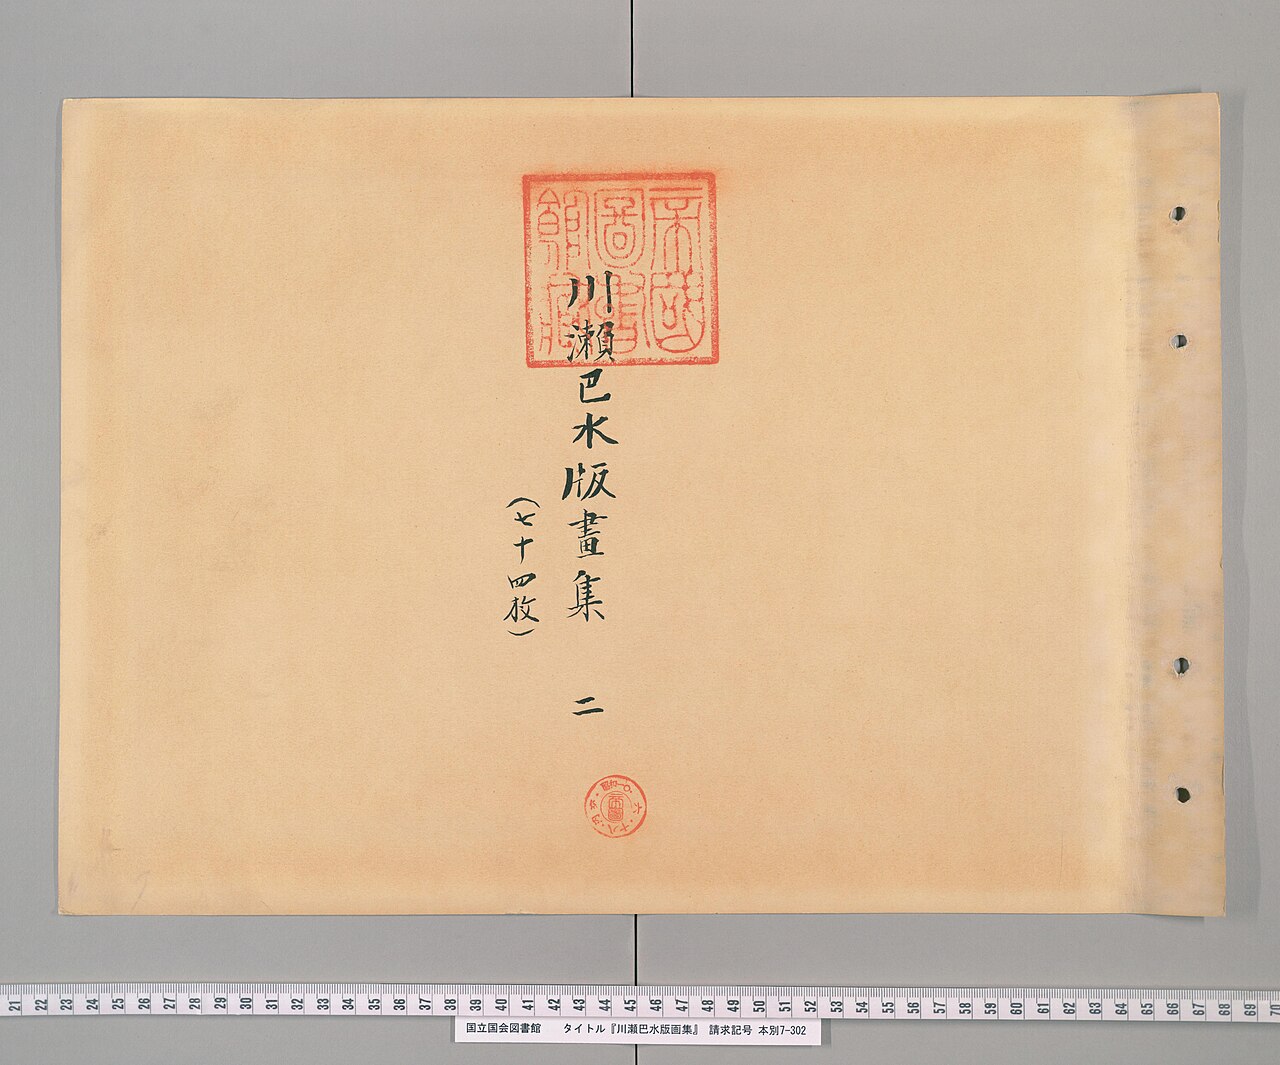 帝國
圖書
館藏
川瀨巴水版畫集 二
(七十四枚)
21 22 23 24 25 26 27 28 29 30 31 32 33 34 35 36 37 38 39 40 41 42 43 44 45 46 47 48 49 50 51 52 53 54 55 56 57 58 59 60 61 62 63 64 65 66 67 68 69 70
国立国会図書館 タイトル『川瀬巴水版画集』 請求記号 本別7-302